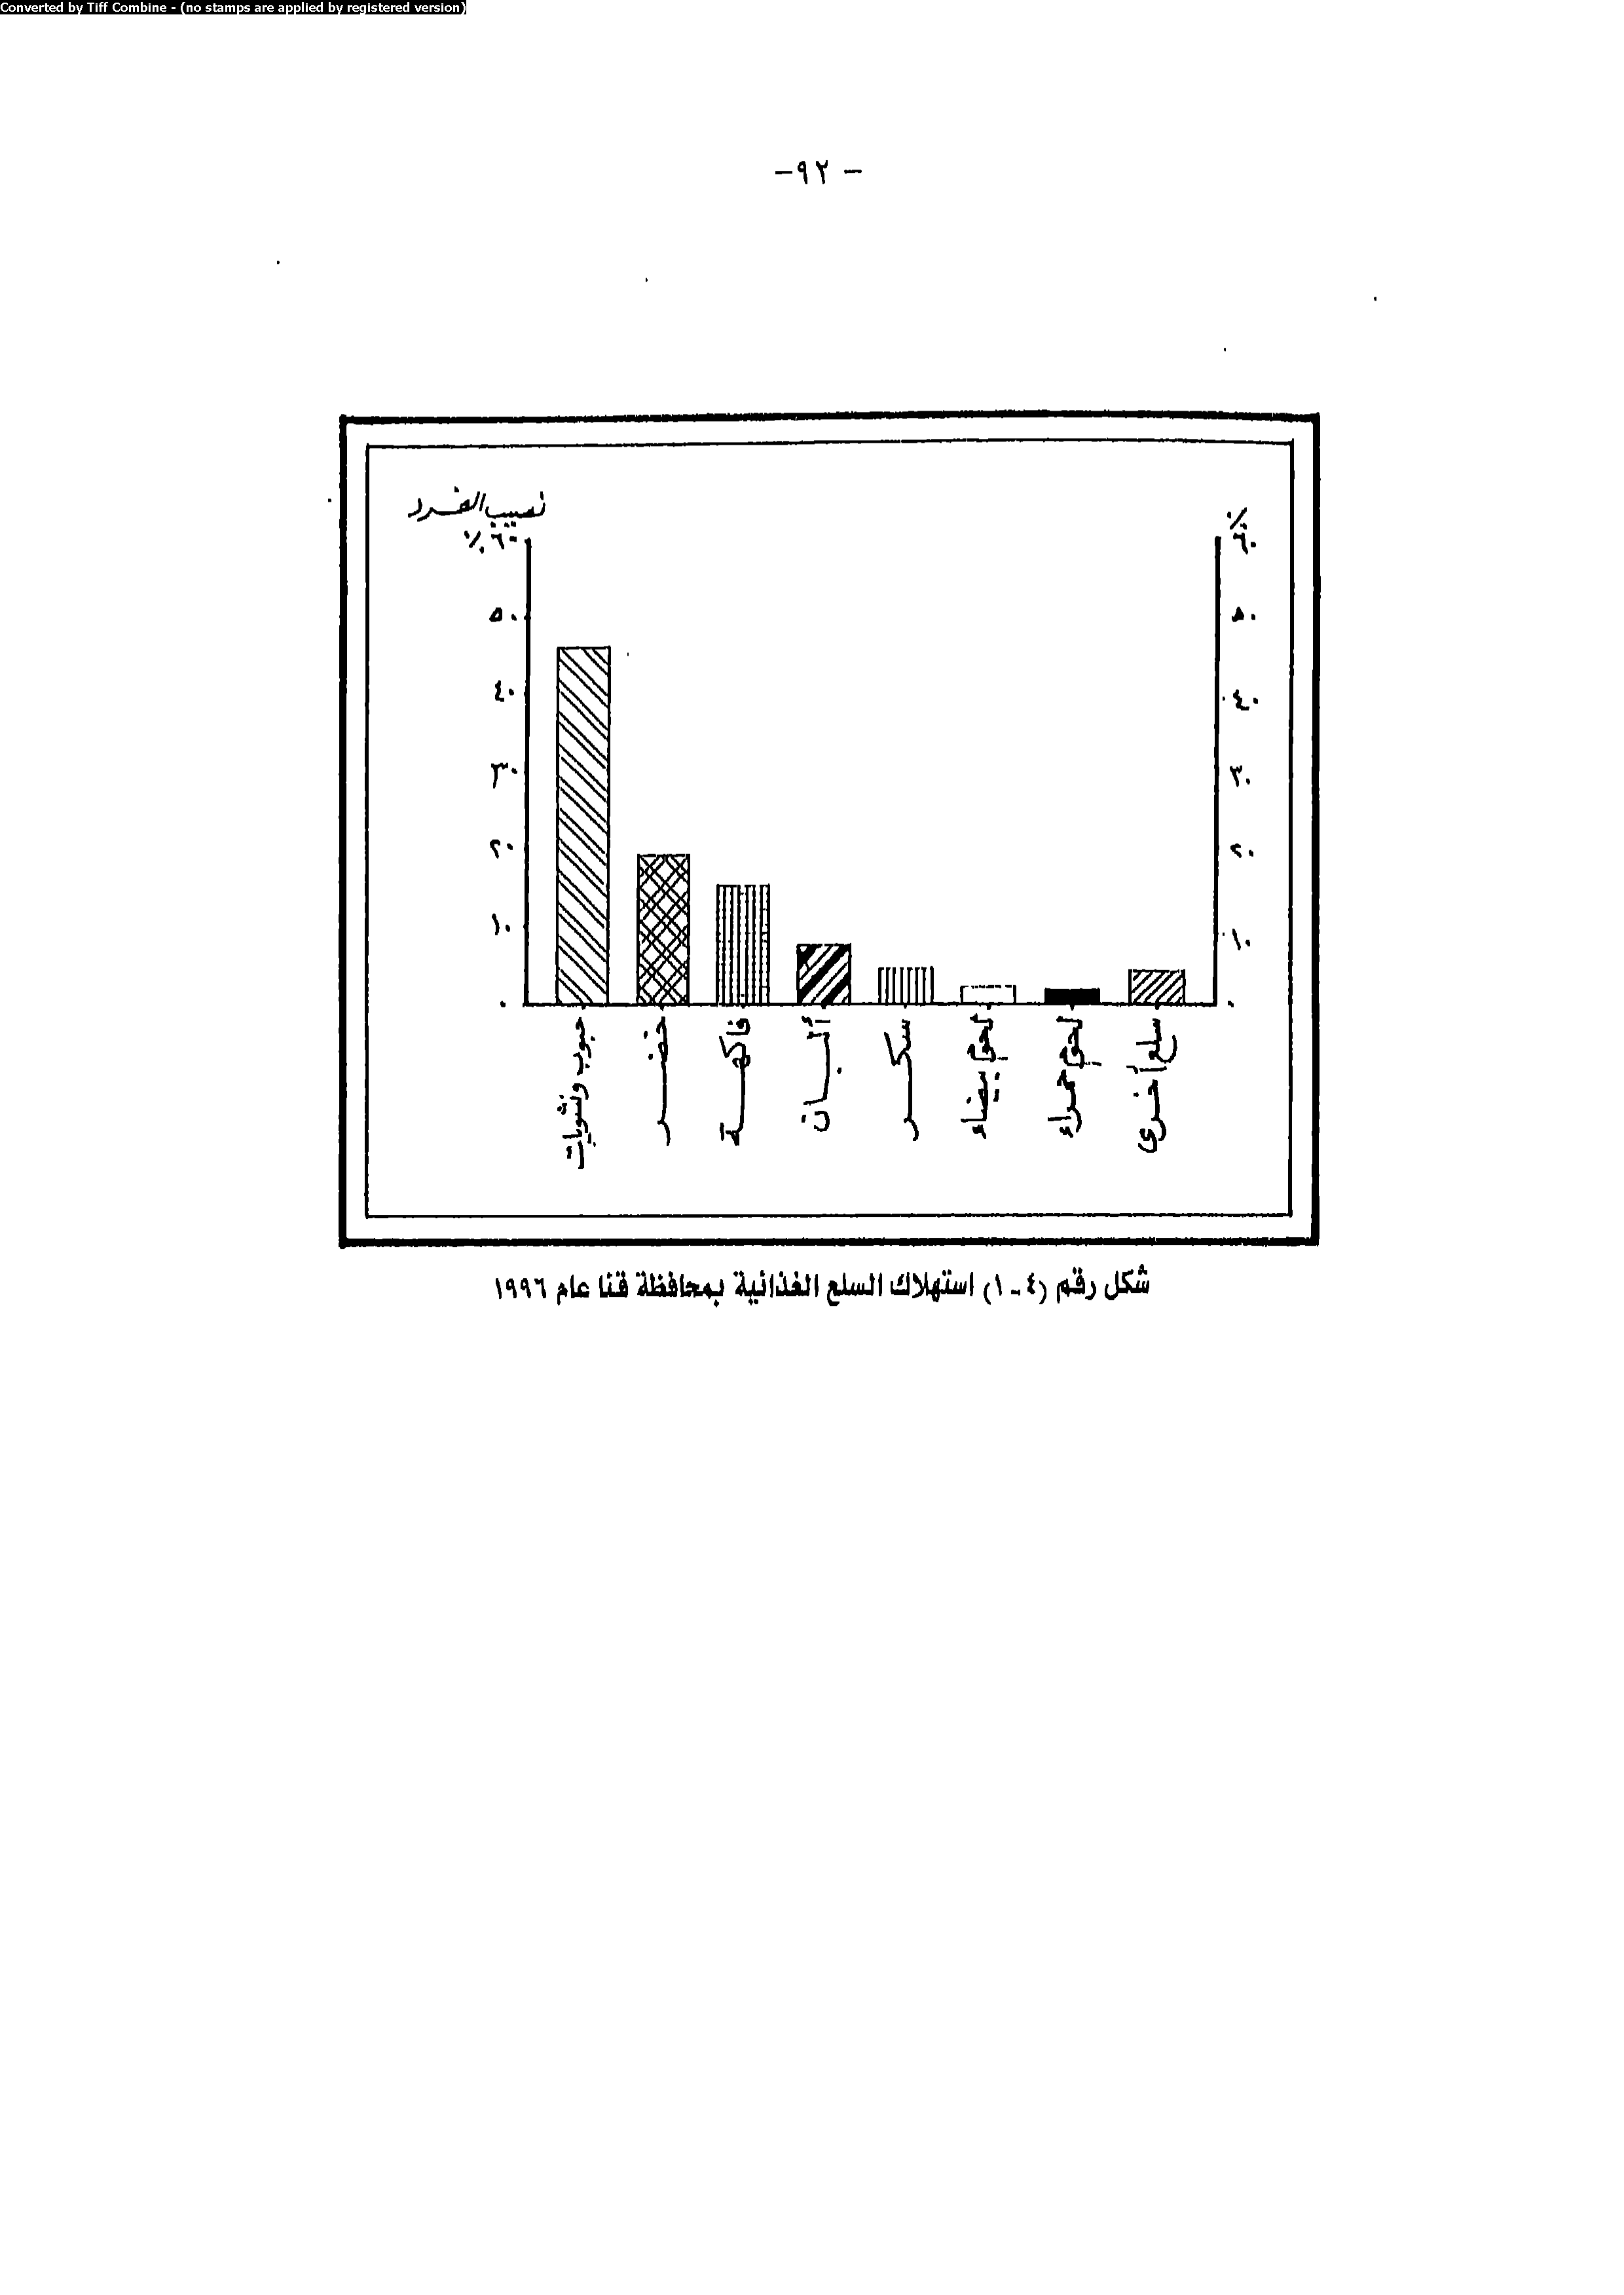 Converted by Tiff Combine - (no stamps are applied by registered version)
-٩٢ -
نصيب الفرد
٪ ٦٠
٥٠
٤٠
٣٠
٢٠
١٠
٠
٪
٦٠
٥٠
٤٠
٣٠
٢٠
١٠
٠
حبوب ونشويات
خضـــر
فاكهـــة
ألبـــان
سكـــر
لحوم بيضاء
لحوم حمراء
سلع أخرى
شكل رقم (٤ - ١) استهلاك السلع الغذائية بمحافظة قنا عام ١٩٩٦